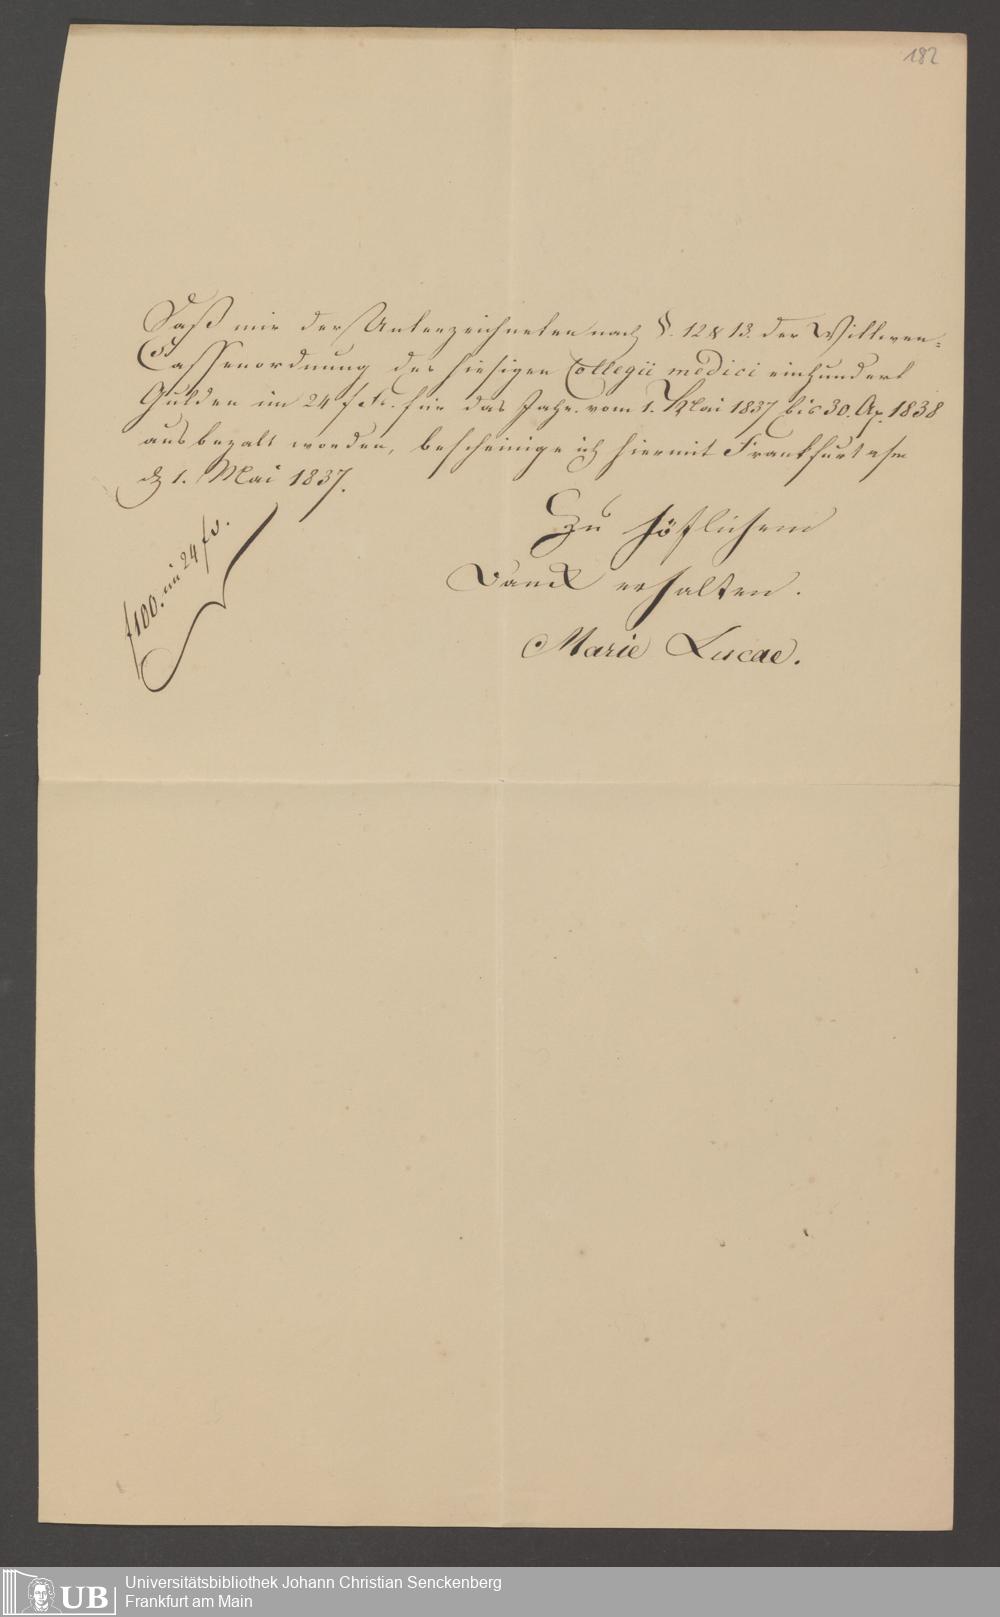 182
Daß mir der Unterzeichneten nach §. 12 & 13. der Wittwen=
Cassenordnung des hiesigen Collegii medici einhundert
Gulden im 24 f für das Jahr vom 1. Mai 1837 bis 30. Ap. 1838
ausbezalt worden, bescheinige ich hiermit Frankfurt a/m
d 1. Mai 1837.
f100. im 24 f
Zu höflichem
Danck erhalten.
Marie Lucae.
UB
Universitätsbibliothek Johann Christian Senckenberg
Frankfurt am Main